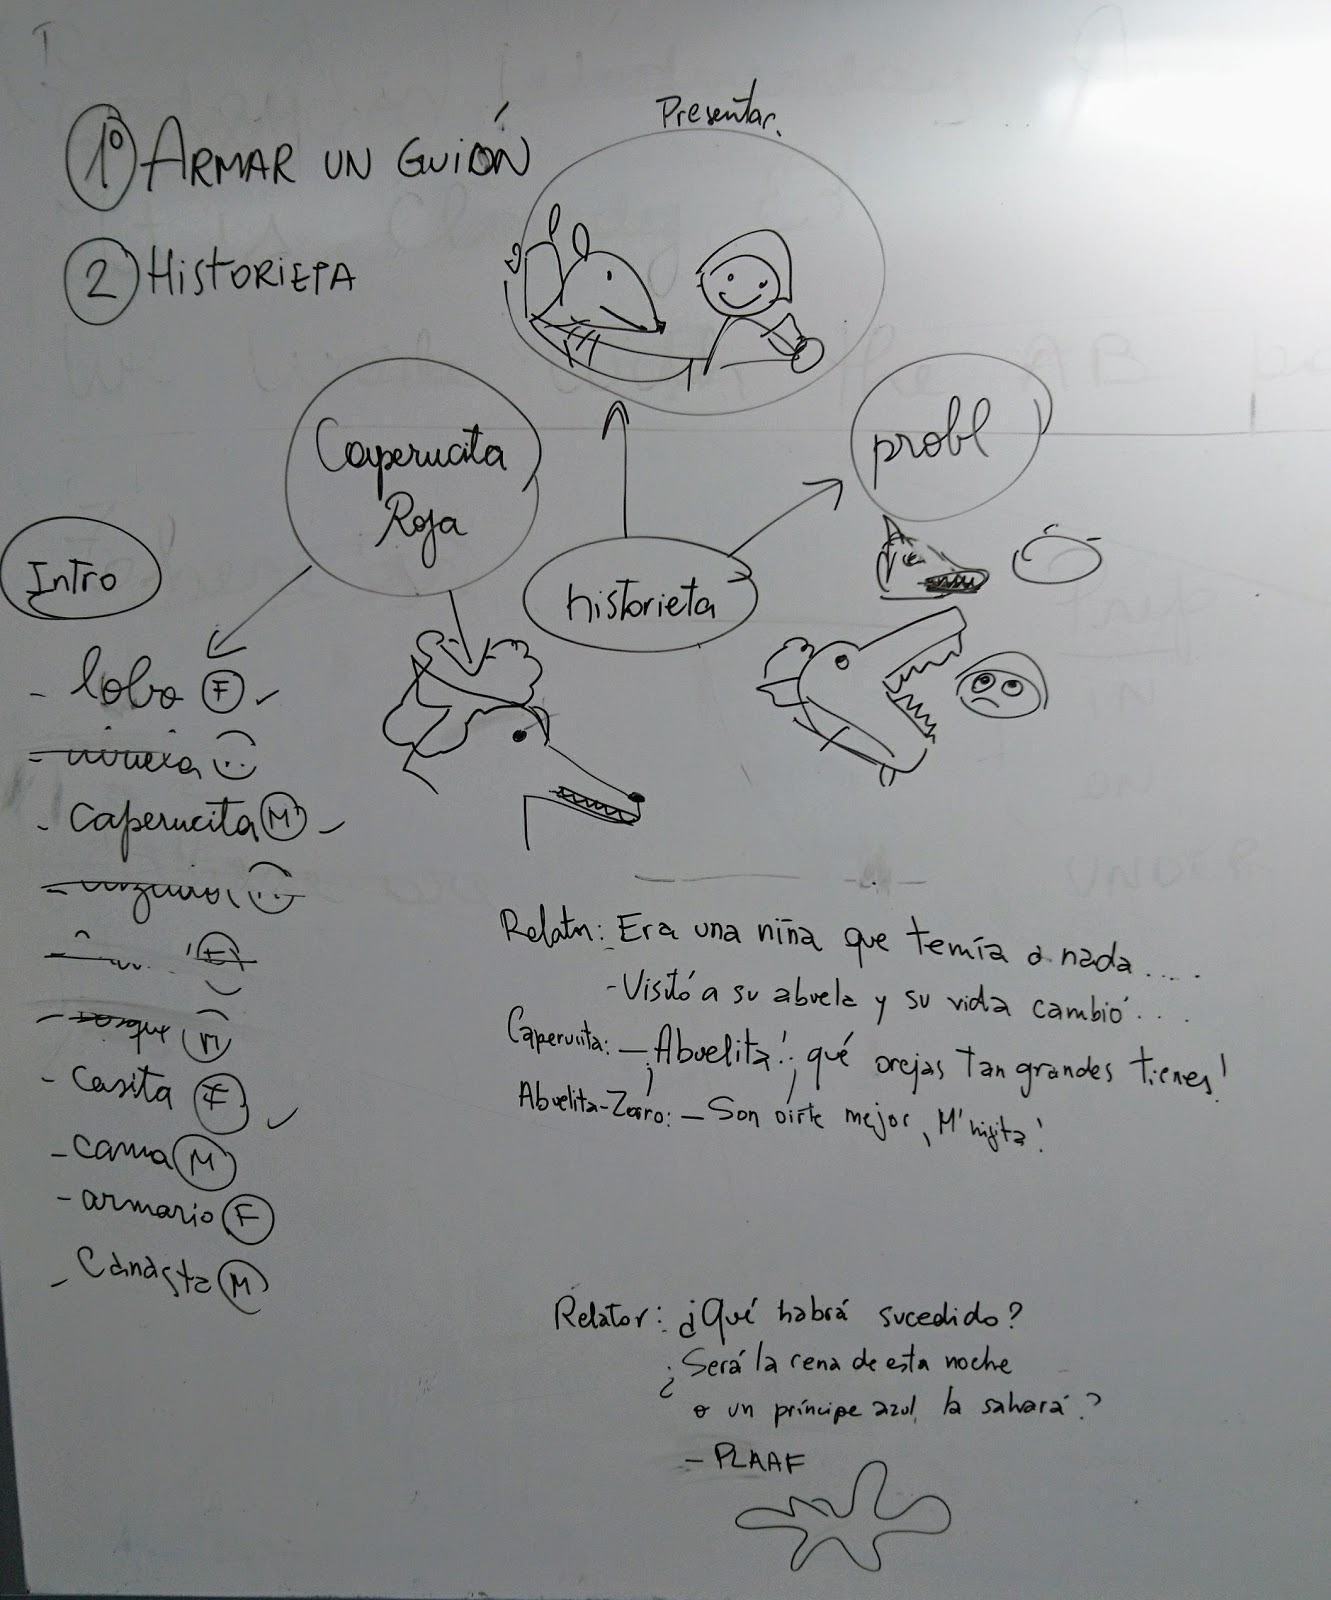 1º ARMAR UN GUIÓN
2 HISTORIETA
Presentar.
Caperucita
Roja
probl
Intro
historieta
- lobo F
- Caperucita M
- bosque M
- Casita F
- cama M
- armario F
- Canasta M
Relator: Era una niña que temía a nada....
- Visitó a su abuela y su vida cambió...
Caperucita: - ¡Abuelita!, ¡qué orejas tan grandes tienes!
Abuelita-Zorro: - Son oírte mejor, M'hijita!
Relator: ¿Qué habrá sucedido?
¿Será la cena de esta noche
o un príncipe azul la salvará?
- PLAAF